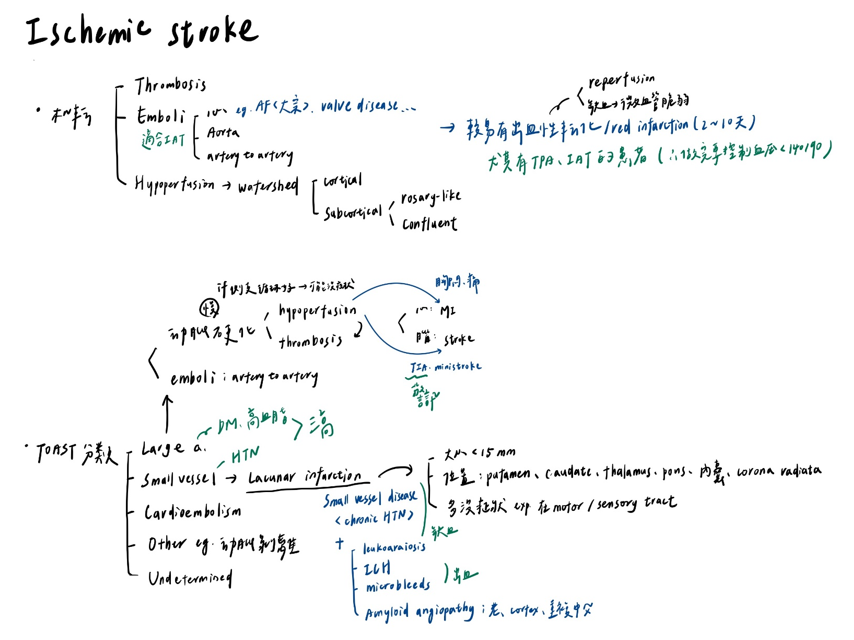 Ischemic stroke
· 機轉
Thrombosis
Emboli
適合IAT
心 eg. AF(大宗)、valve disease...
Aorta
artery to artery
Hypoperfusion → watershed
cortical
Subcortical
rosary-like
confluent
reperfusion
缺血→微血管脆弱
→ 較易有出血性轉化/red infarction (2~10天)
尤其有TPA、IAT的患者 (∴做完要控制血壓<140/90)
慢
→可能沒症狀
動脈硬化
hypoperfusion
thrombosis
emboli : artery to artery
胸悶、痛
心: MI
腦: stroke
TIA: ministroke
警訊
· TOAST 分類
Large a.
DM、高血脂
三高
HTN
Small vessel → Lacunar infarction
Cardioembolism
Other eg. 動脈剝離
Undetermined
大小 <15 mm
位置: putamen、caudate、thalamus、pons、內囊、corona radiata
多沒症狀 exp 在motor / sensory tract
Small vessel disease
<chronic HTN>
缺血
+
leukoaraiosis
ICH
microbleeds
出血
Amyloid angiopathy : 老、cortex、